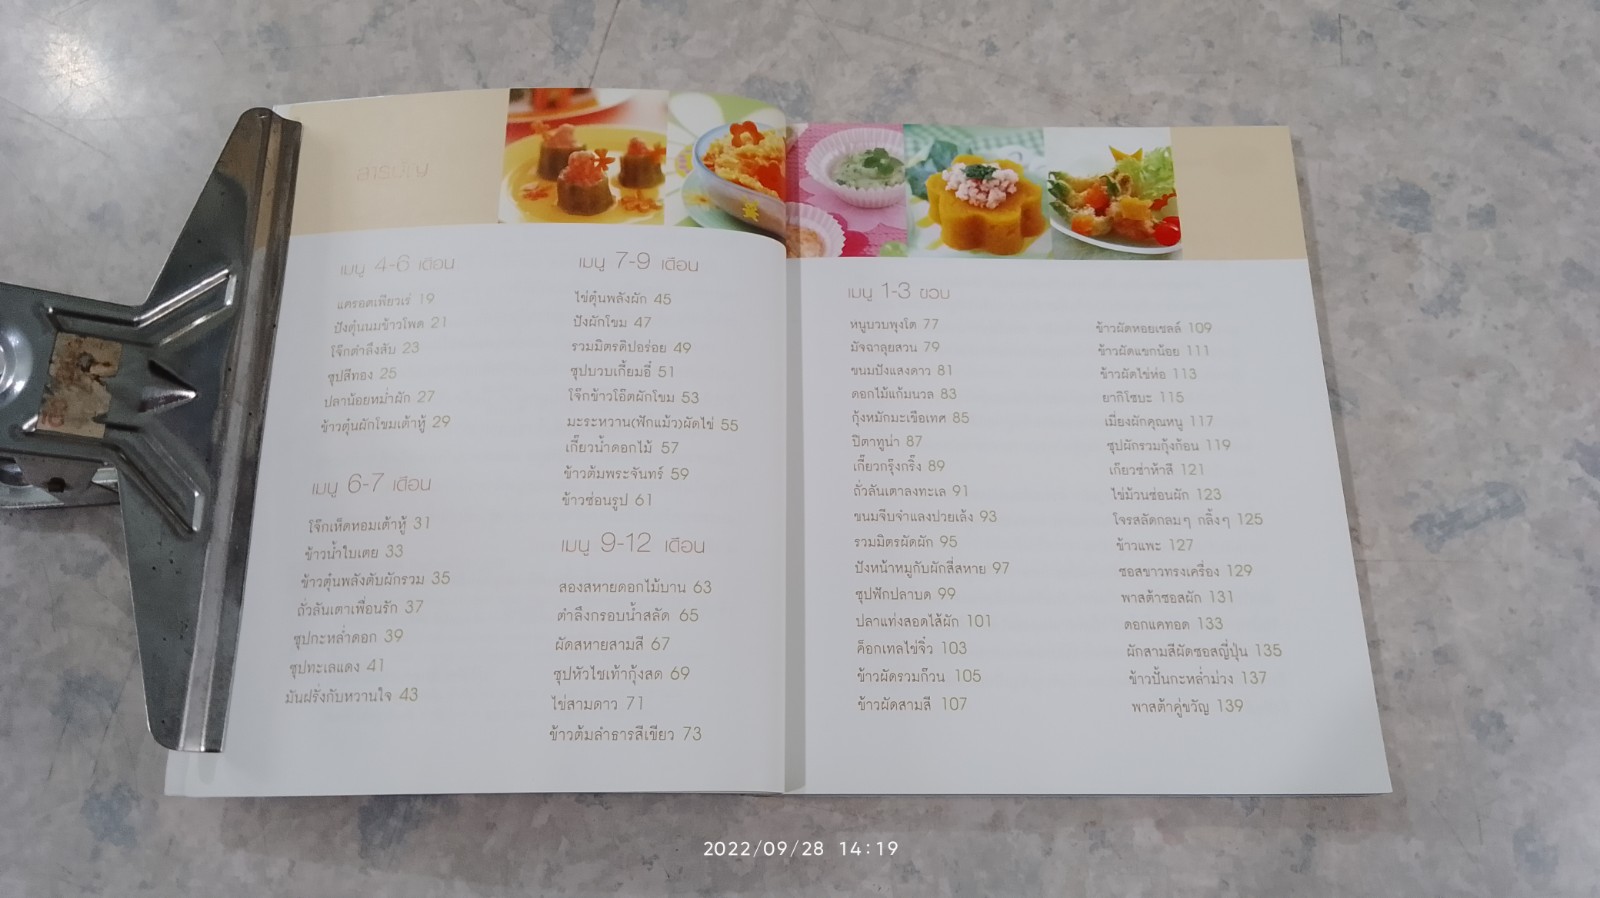 สารบัญ
เมนู 4-6 เดือน
แครอตเพียวเร่ 19
ปังตุ๋นนมข้าวโพด 21
โจ๊กตำลึงสับ 23
ซุปสีทอง 25
ปลาน้อยหม่ำผัก 27
ข้าวตุ๋นผักโขมเต้าหู้ 29
เมนู 6-7 เดือน
โจ๊กเห็ดหอมเต้าหู้ 31
ข้าวน้ำใบเตย 33
ข้าวตุ๋นพลังตับผักรวม 35
ถั่วลันเตาเพื่อนรัก 37
ซุปกะหล่ำดอก 39
ซุปทะเลแดง 41
มันฝรั่งกับหวานใจ 43
เมนู 7-9 เดือน
ไข่ตุ๋นพลังผัก 45
ปังผักโขม 47
รวมมิตรดิปอร่อย 49
ซุปบวบเกี้ยมอี๋ 51
โจ๊กข้าวโอ๊ตผักโขม 53
มะระหวาน(ฟักแม้ว)ผัดไข่ 55
เกี๊ยวน้ำดอกไม้ 57
ข้าวต้มพระจันทร์ 59
ข้าวซ่อนรูป 61
เมนู 9-12 เดือน
สองสหายดอกไม้บาน 63
ตำลึงกรอบน้ำสลัด 65
ผัดสหายสามสี 67
ซุปหัวไชเท้ากุ้งสด 69
ไข่สามดาว 71
ข้าวต้มลำธารสีเขียว 73
เมนู 1-3 ขวบ
หนูบวบพุงโต 77
มัจฉาลุยสวน 79
ขนมปังแสงดาว 81
ดอกไม้แก้มนวล 83
กุ้งหมักมะเขือเทศ 85
ปิตาทูน่า 87
เกี๊ยวกรุ๊งกริ๊ง 89
ถั่วลันเตาลงทะเล 91
ขนมจีบจำแลงปวยเล้ง 93
รวมมิตรผัดผัก 95
ปังหน้าหมูกับผักสี่สหาย 97
ซุปฟักปลาบด 99
ปลาแท่งสอดไส้ผัก 101
ค็อกเทลไข่จิ๋ว 103
ข้าวผัดรวมก๊วน 105
ข้าวผัดสามสี 107
ข้าวผัดหอยเชลล์ 109
ข้าวผัดแขกน้อย 111
ข้าวผัดไข่ห่อ 113
ยากิโซบะ 115
เมี่ยงผักคุณหนู 117
ซุปผักรวมกุ้งก้อน 119
เกี๊ยวซ่าห้าสี 121
ไข่ม้วนซ่อนผัก 123
โจรสลัดกลมๆ กลิ้งๆ 125
ข้าวแพะ 127
ซอสขาวทรงเครื่อง 129
พาสต้าซอสผัก 131
ดอกแคทอด 133
ผักสามสีผัดซอสญี่ปุ่น 135
ข้าวปั้นกะหล่ำม่วง 137
พาสต้าคู่ขวัญ 139
2022/09/28 14:19